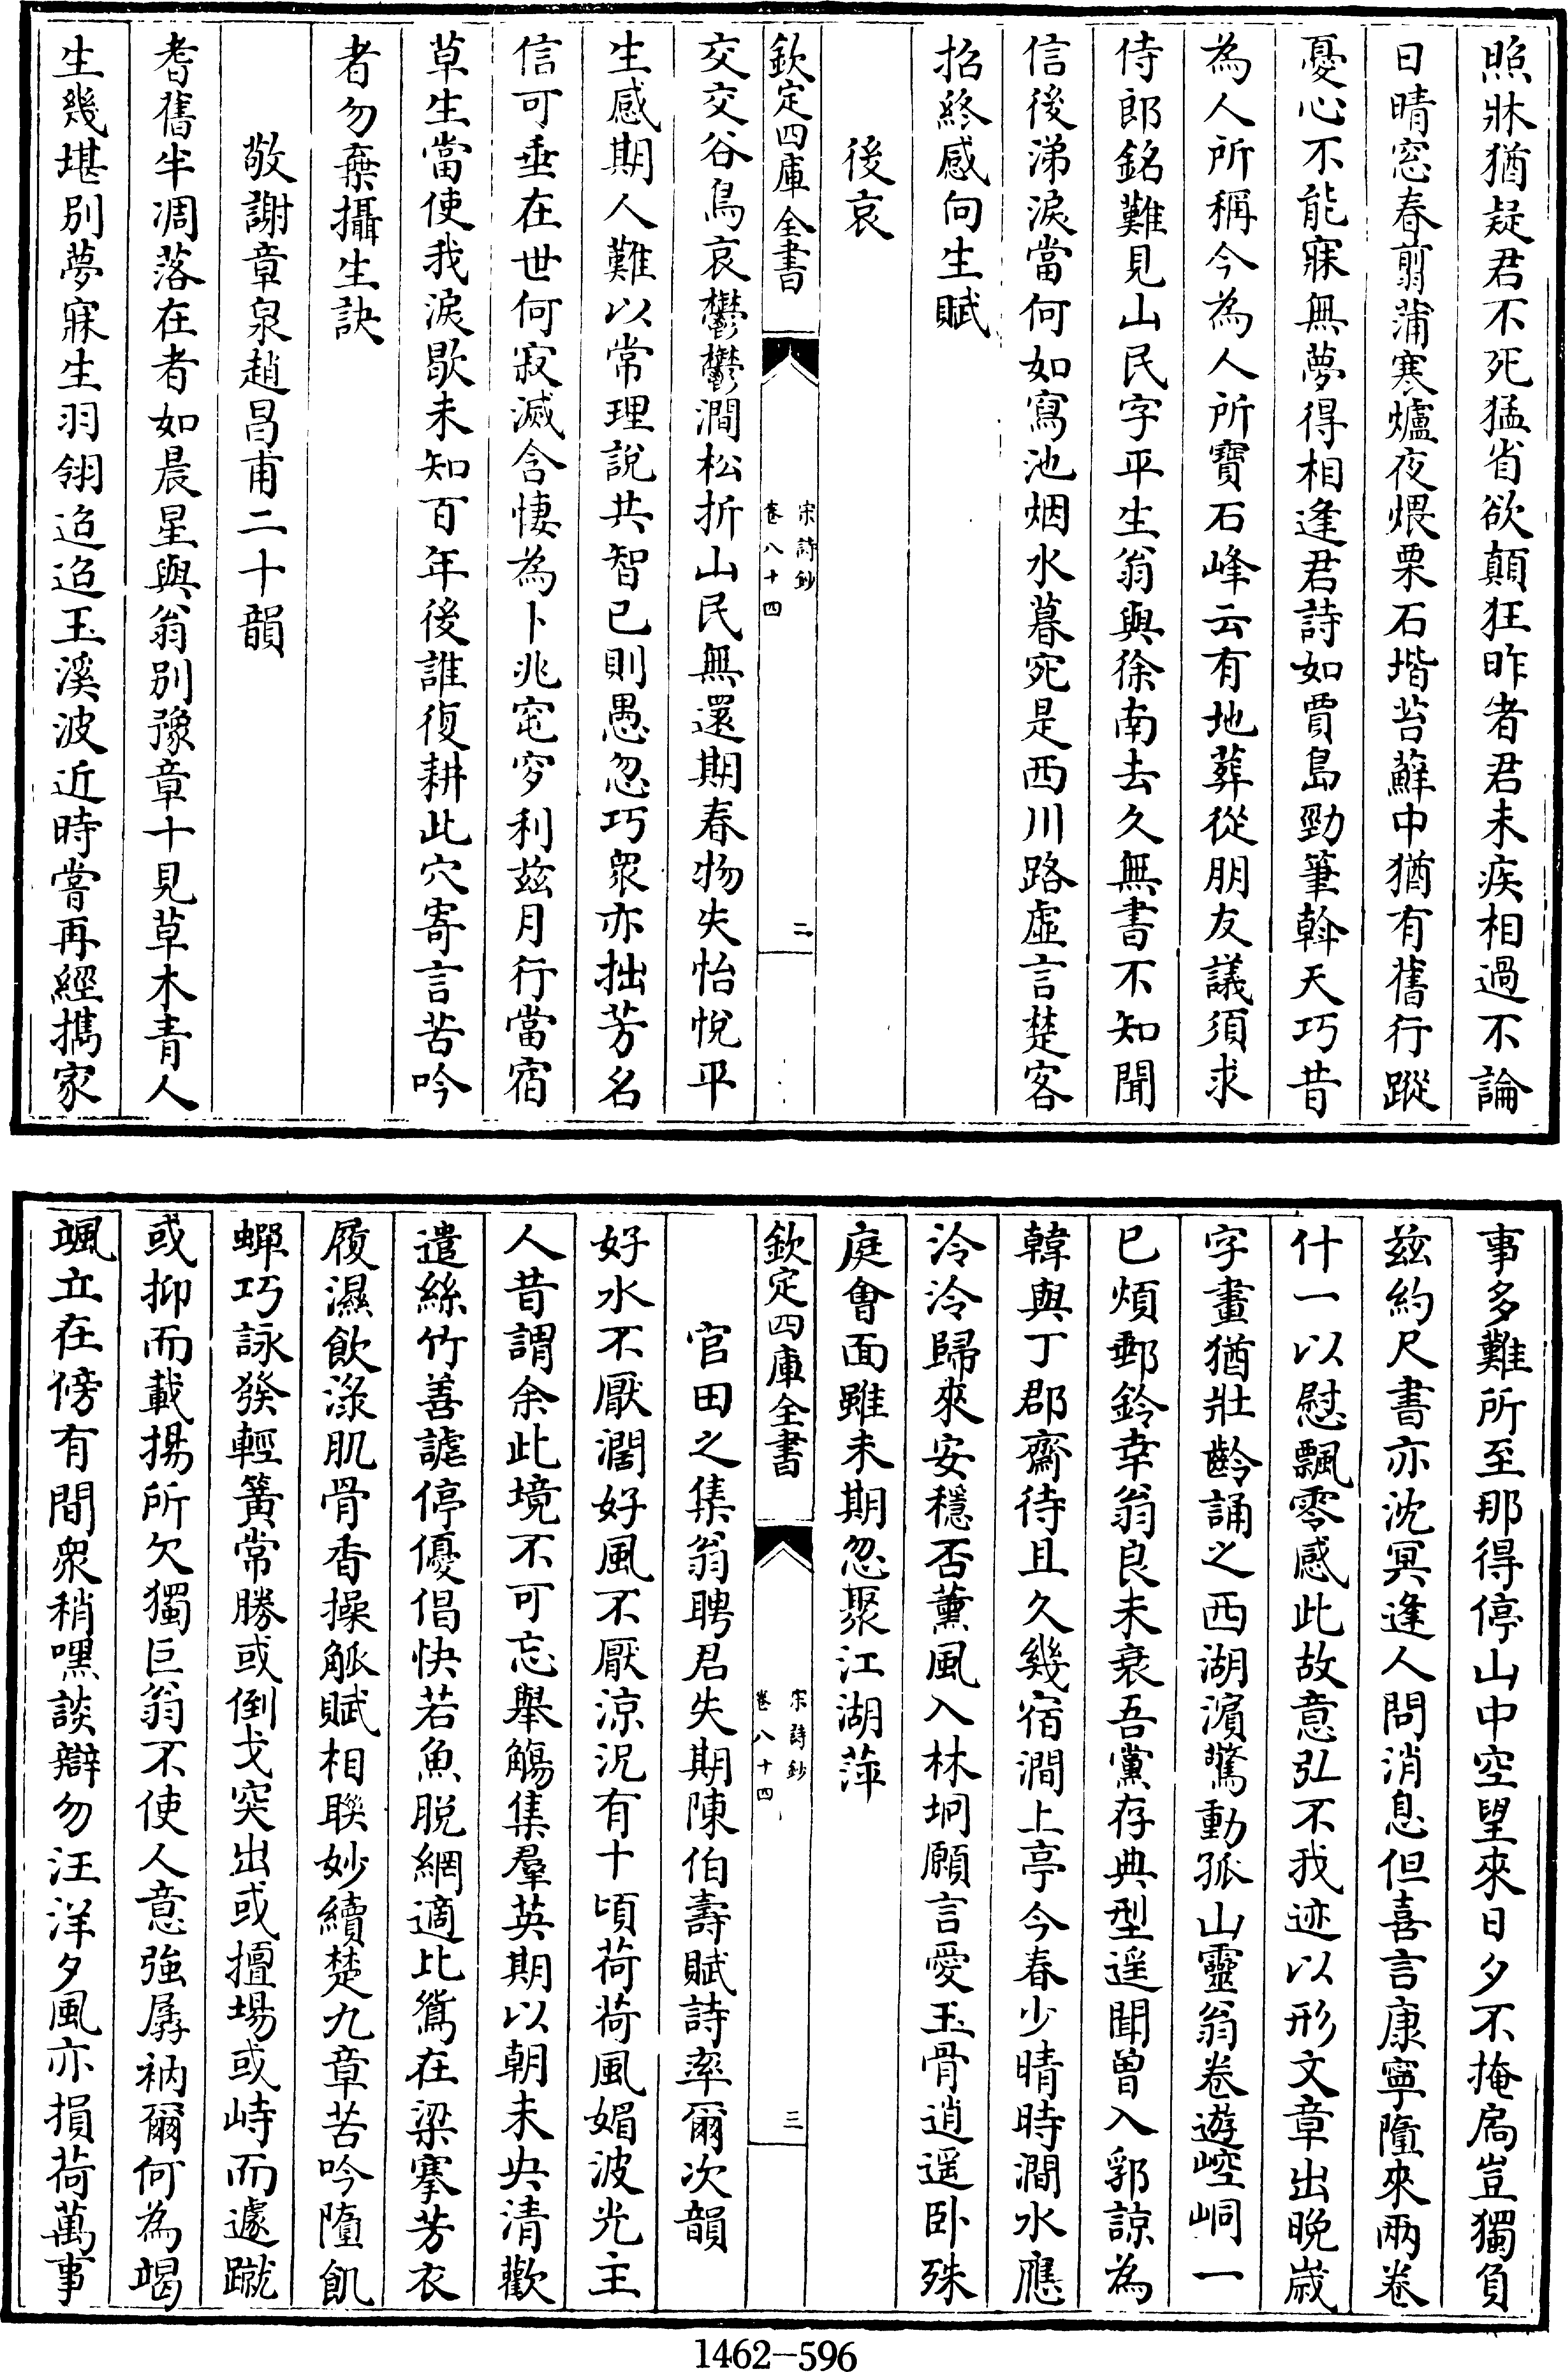 照牀猶疑君不死猛省欲顛狂昨者君未疾相過不論
日晴窓春翦蒲寒爐夜煨栗石堦苔蘚中猶有舊行蹤
憂心不能寐無夢得相逢君詩如賈島勁筆斡天巧昔
為人所稱今為人所寶石峰云有地葬從朋友議須求
侍郎銘難見山民字平生翁與徐南去久無書不知聞
信後涕淚當何如寫池烟水暮宛是西川路虛言楚客
招終感向生賦
後哀
欽定四庫全書
宋詩鈔
卷八十四
二
交交谷鳥哀鬱鬱澗松折山民無還期春物失怡悅平
生感期人難以常理說共智已則愚忽巧衆亦拙芳名
信可垂在世何寂滅含悽為卜兆窀穸利茲月行當宿
草生當使我淚歇未知百年後誰復耕此穴寄言苦吟
者勿棄攝生訣
敬謝章泉趙昌甫二十韻
耆舊半凋落在者如晨星與翁別豫章十見草木青人
生幾堪別夢寐生羽翎迢迢玉溪波近時嘗再經攜家
事多難所至那得停山中空望來日夕不掩扃豈獨負
茲約尺書亦沈冥逢人問消息但喜言康寧墮來兩卷
什一以慰飄零感此故意弘不我迹以形文章出晚歲
字畫猶壯齡誦之西湖濵驚動孤山靈翁卷遊崆峒一
已煩郵鈴幸翁良未衰吾黨存典型遥聞曾入郛諒為
韓與丁郡齋待且久幾宿澗上亭今春少晴時澗水應
泠泠歸來安穩否薰風入林坰願言愛玉骨逍遥卧殊
庭會面雖未期忽聚江湖萍
欽定四庫全書
宋詩鈔
卷八十四
三
官田之集翁聘君失期陳伯壽賦詩率爾次韻
好水不厭濶好風不厭涼況有十頃荷荷風媚波光主
人昔謂余此境不可忘舉觴集羣英期以朝未央清歡
遣絲竹善謔停優倡快若魚脫網適比鴛在梁搴芳衣
履濕飲淥肌骨香操觚賦相聯妙續楚九章苦吟墮飢
蟬巧詠發輕簧常勝或倒戈突出或擅場或峙而遽蹴
或抑而載揚所欠獨巨翁不使人意強孱衲爾何為竭
颯立在傍有間衆稍嘿談辯勿汪洋夕風亦損荷萬事
1462-596